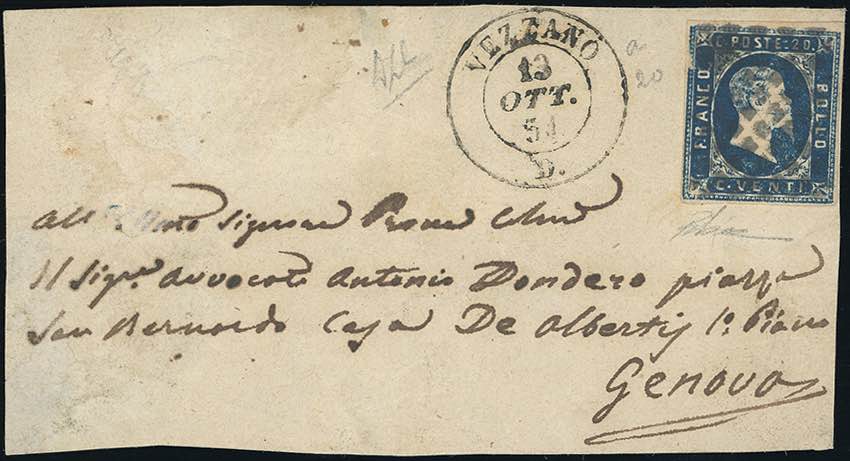 VEZZANO
13
OTT.
54
D.
a
20
C. POSTE. 20.
FRANCO
BOLLO
C. VENTI
All' Illmo Signore Prone Colmo
Il Sigr. Avvocato Antonio Dondero piazza
San Bernardo Casa De Albertis 1o. Piano
Genova